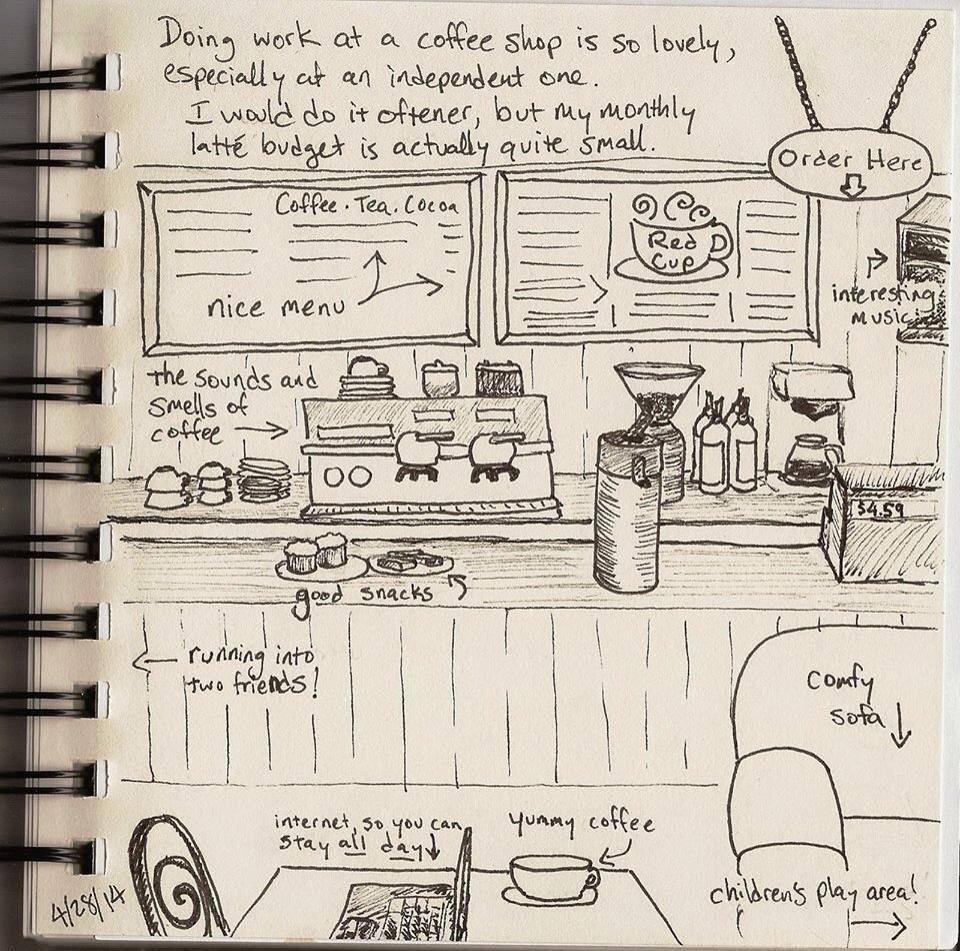 Doing work at a coffee shop is so lovely,
especially at an independent one.
I would do it oftener, but my monthly
latté budget is actually quite small.
Order Here
Coffee · Tea. Cocoa
nice menu
Red
Cup
interesting
music
the sounds and
smells of
coffee
$4.59
good snacks
running into
two friends!
Comfy
sofa
internet, so you can
stay all day
yummy coffee
children's play area!
4/28/14